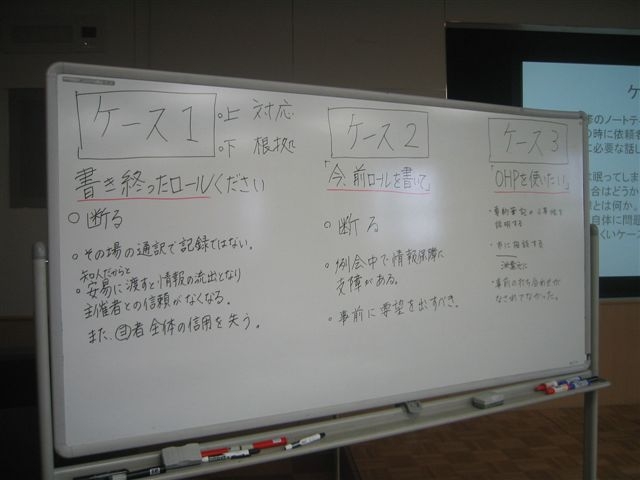 ケース1
○上 対応
○下 根拠
書き終ったロールください
○断る
○その場の通訳で記録ではない。
知人だからと
○安易に渡すと情報の流出となり
主催者との信頼がなくなる。
また、㊟者全体の信用を失う。
ケース2
「今、前ロールを書いて」
○断る
○例会中で情報保障に
支障がある。
○事前に要望を出すべき。
ケース3
「OHPを使いたい」
説明する
○に相談する
派遣元に
○事前の打ち合わせが
なされてなかった。
ケ
のノートテ
の時に依頼
に必要な話し
は眠ってしま
合はどうか
とは何か。
自体に問題
くいケース